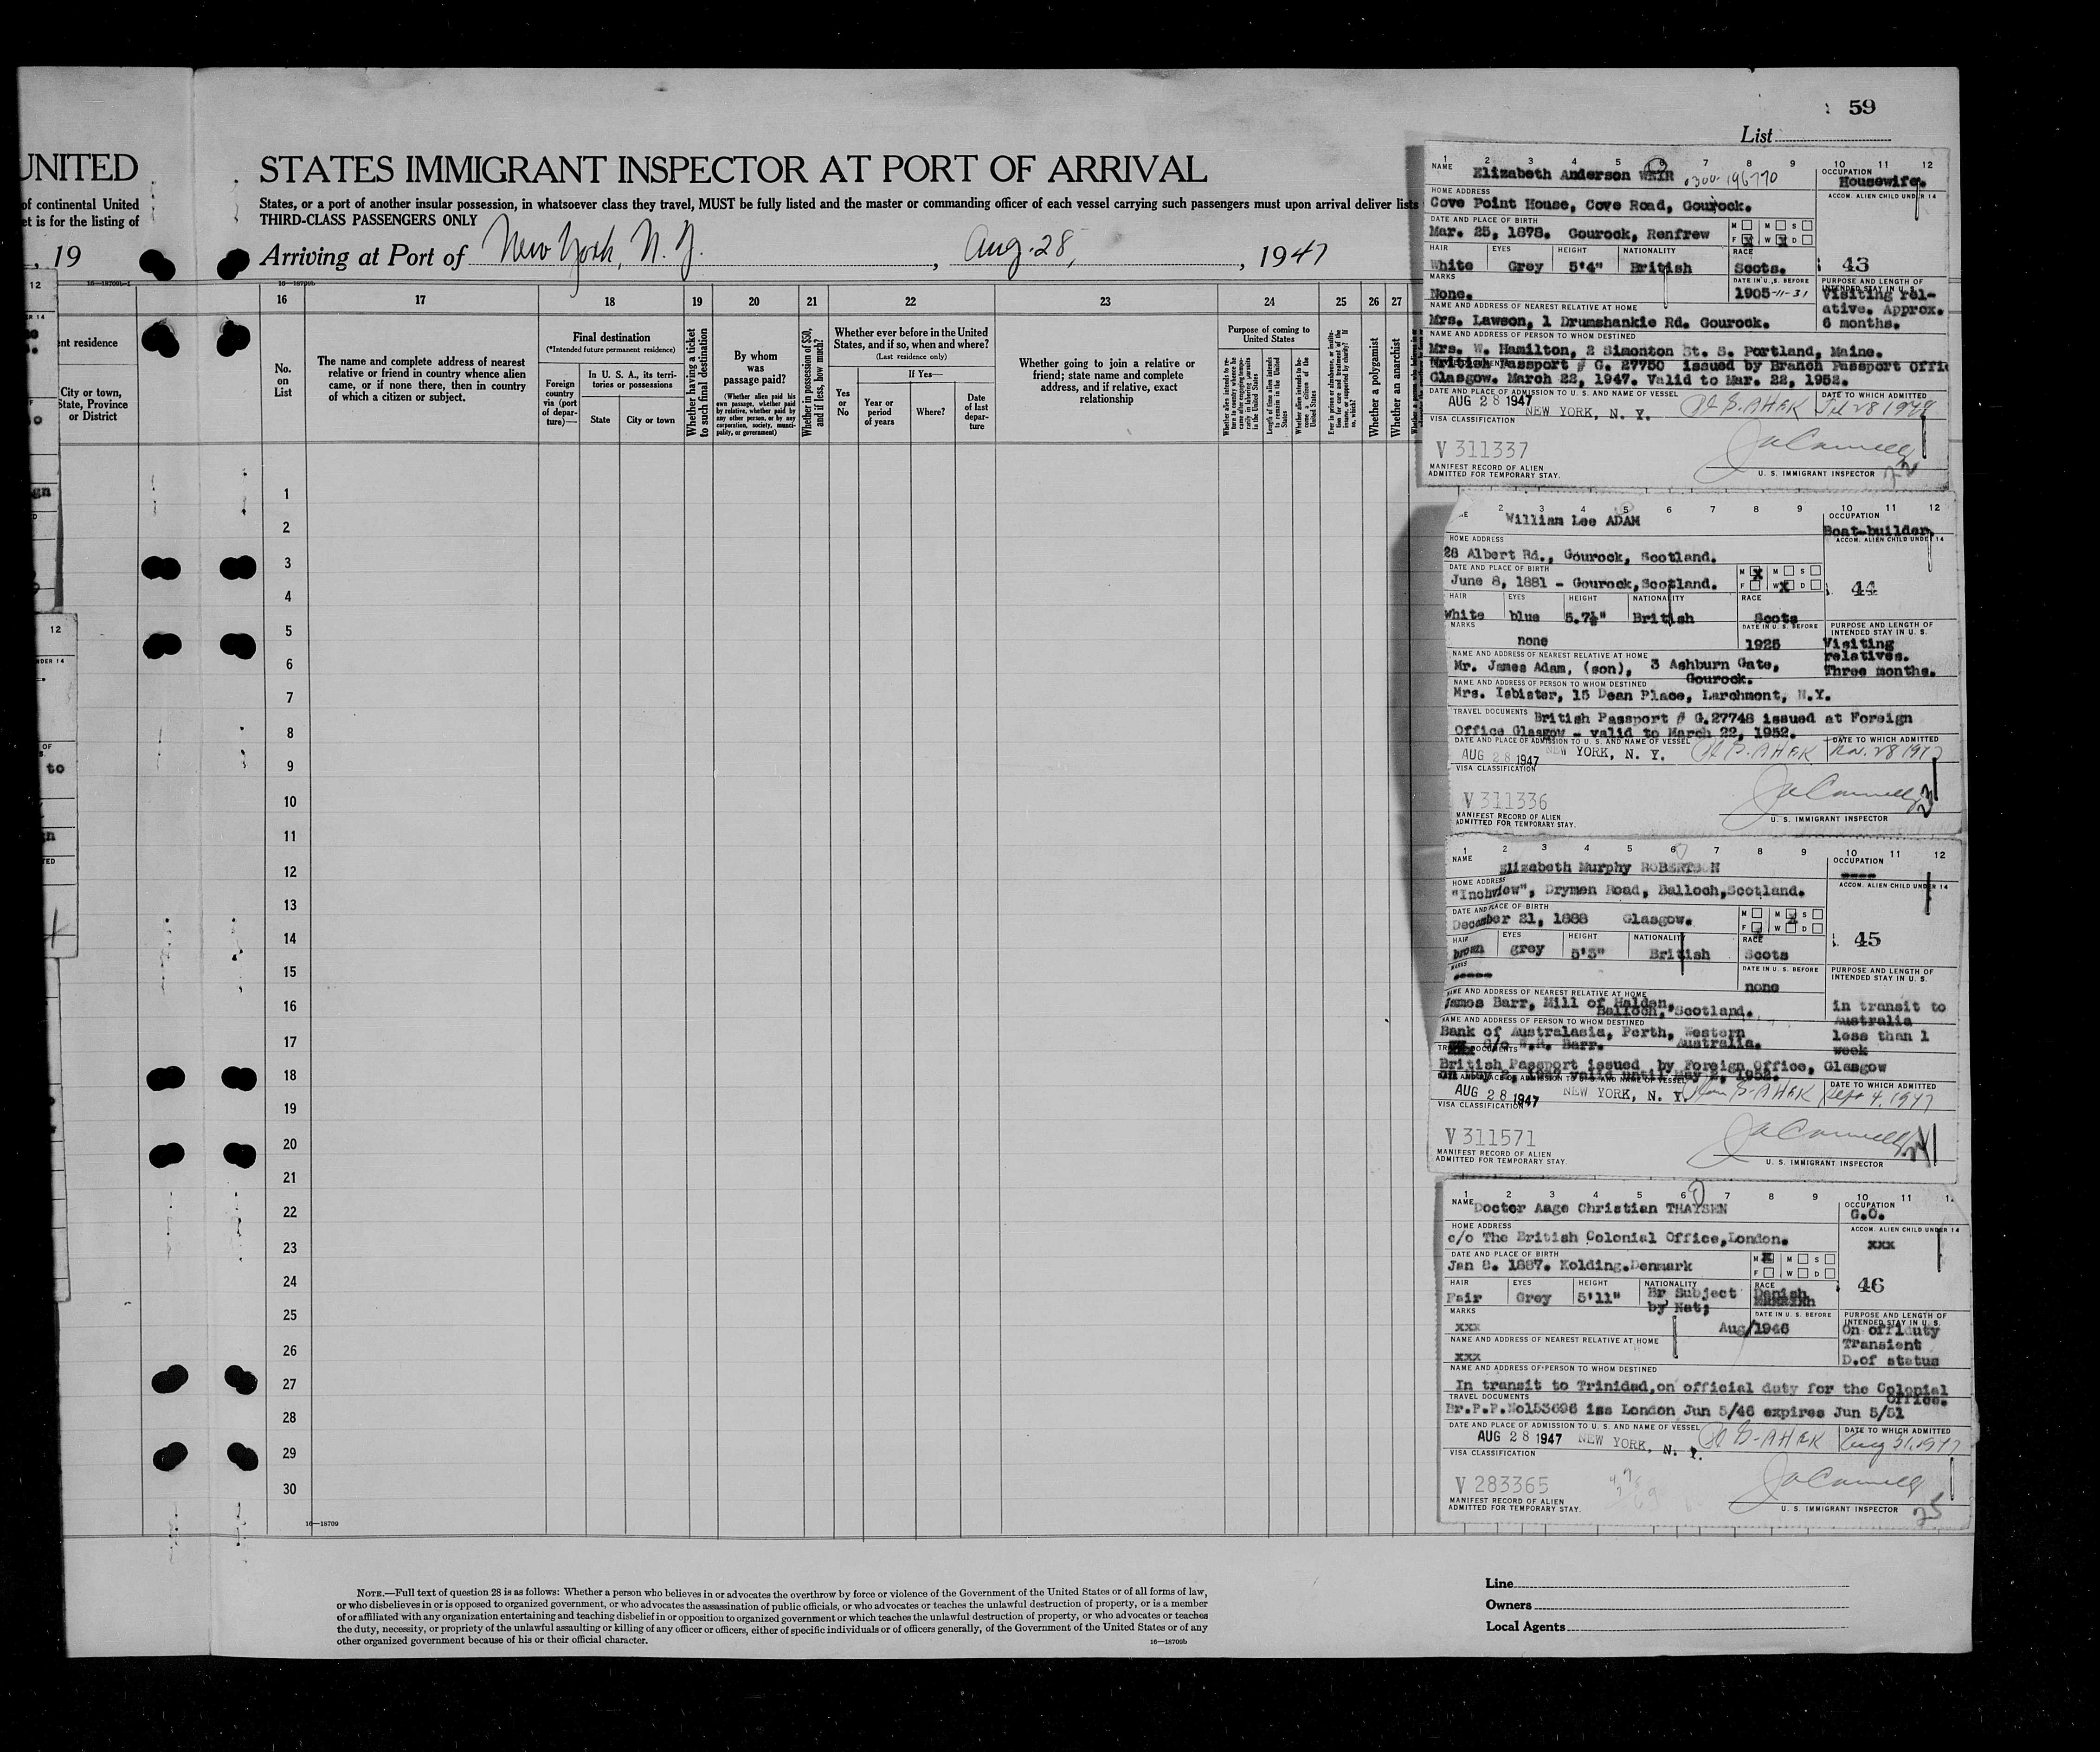 59
List
UNITED
STATES IMMIGRANT INSPECTOR AT PORT OF ARRIVAL
of continental United
et is for the listing of
States, or a port of another insular possession, in whatsoever class they travel, MUST be fully listed and the master or commanding officer of each vessel carrying such passengers must upon arrival deliver lists
THIRD-CLASS PASSENGERS ONLY
, 19
Arriving at Port of New York, N. Y. , Aug. 28, , 1947
16—18709b
16 17 18 19 20 21 22 23 24 25 26 27
ent residence
City or town,
State, Province
or District
No.
on
List
The name and complete address of nearest
relative or friend in country whence alien
came, or if none there, then in country
of which a citizen or subject.
Final destination
(*Intended future permanent residence)
Foreign
country
via (port
of depar-
ture)—
In U. S. A., its terri-
tories or possessions
State
City or town
Whether having a ticket
to such final destination
By whom
was
passage paid?
(Whether alien paid his
own passage, whether paid
by relative, whether paid by
any other person, or by any
corporation, society, munici-
pality, or government)
Whether in possession of $50,
and if less, how much?
Whether ever before in the United
States, and if so, when and where?
(Last residence only)
Yes
or
No
If Yes—
Year or
period
of years
Where?
Date
of last
depar-
ture
Whether going to join a relative or
friend; state name and complete
address, and if relative, exact
relationship
Purpose of coming to
United States
Length of time alien intends
to remain in the United
States
Whether a polygamist
Whether an anarchist
1
2
3
4
5
6
7
8
9
10
11
12
13
14
15
16
17
18
19
20
21
22
23
24
25
26
27
28
29
30
16—18709
1 2 3 4 5 6 7 8 9 10 11 12
NAME Elizabeth Anderson WEIR
OCCUPATION
Housewife.
HOME ADDRESS
Cove Point House, Cove Road, Gourock.
ACCOM. ALIEN CHILD UNDER 14
DATE AND PLACE OF BIRTH
Mar. 25, 1878. Gourock, Renfrew
M M S
F W D
HAIR EYES HEIGHT NATIONALITY RACE
White Grey 5'4" British Scots.
43
MARKS
None.
DATE IN U. S. BEFORE
1905-11-31
PURPOSE AND LENGTH OF
INTENDED STAY IN U. S.
Visiting rel-
ative. Approx.
6 months.
NAME AND ADDRESS OF NEAREST RELATIVE AT HOME
Mrs. Lawson, 1 Drumshankie Rd. Gourock.
NAME AND ADDRESS OF PERSON TO WHOM DESTINED
Mrs. W. Hamilton, 2 Simonton St. S. Portland, Maine.
British Passport # G. 27750 issued by Branch Passport Offi
Glasgow. March 22, 1947. Valid to Mar. 22, 1952.
DATE AND PLACE OF ADMISSION TO U. S. AND NAME OF VESSEL
DATE TO WHICH ADMITTED
AUG 28 1947 NEW YORK, N. Y.
VISA CLASSIFICATION
V 311337
MANIFEST RECORD OF ALIEN
ADMITTED FOR TEMPORARY STAY.
U. S. IMMIGRANT INSPECTOR
2 3 4 5 6 7 8 9 10 11 12
William Lee ADAM
OCCUPATION
Boat-builder
HOME ADDRESS
28 Albert Rd., Gourock, Scotland.
ACCOM. ALIEN CHILD UNDER 14
DATE AND PLACE OF BIRTH
June 8, 1881 - Gourock,Scotland.
M M S
F W D
44
HAIR EYES HEIGHT NATIONALITY RACE
White blue 5.7½" British Scots
MARKS
none
DATE IN U. S. BEFORE
1925
PURPOSE AND LENGTH OF
INTENDED STAY IN U. S.
Visiting
relatives.
Three months.
NAME AND ADDRESS OF NEAREST RELATIVE AT HOME
Mr. James Adam, (son), 3 Ashburn Gate,
Gourock.
NAME AND ADDRESS OF PERSON TO WHOM DESTINED
Mrs. Isbister, 15 Dean Place, Larchmont, N.Y.
TRAVEL DOCUMENTS British Passport # G.27748 issued at Foreign
Office Glasgow - valid to March 22, 1952.
DATE AND PLACE OF ADMISSION TO U. S. AND NAME OF VESSEL
DATE TO WHICH ADMITTED
AUG 28 1947 NEW YORK, N. Y. Nov. 28 1947
VISA CLASSIFICATION
V 311336
MANIFEST RECORD OF ALIEN
ADMITTED FOR TEMPORARY STAY.
U. S. IMMIGRANT INSPECTOR
23
1 2 3 4 5 6 7 8 9 10 11 12
NAME Elizabeth Murphy ROBERTSON
OCCUPATION
HOME ADDRESS
"Inchview", Drymen Road, Balloch,Scotland.
ACCOM. ALIEN CHILD UNDER 14
DATE AND PLACE OF BIRTH
December 21, 1888 Glasgow.
M M S
F W D
45
HAIR EYES HEIGHT NATIONALITY RACE
brown grey 5'3" British Scots
MARKS
DATE IN U. S. BEFORE
none
PURPOSE AND LENGTH OF
INTENDED STAY IN U. S.
in transit to
Australia
less than 1
week
NAME AND ADDRESS OF NEAREST RELATIVE AT HOME
James Barr, Mill of Halden,
Balloch, Scotland.
NAME AND ADDRESS OF PERSON TO WHOM DESTINED
Bank of Australasia, Perth, Western
c/o W.R. Barr. Australia.
British Passport issued by Foreign Office, Glasgow
on May 2, 1947 valid until May 2, 1952.
DATE TO WHICH ADMITTED
AUG 28 1947 NEW YORK, N. Y. Sept 4, 1947
VISA CLASSIFICATION
V 311571
MANIFEST RECORD OF ALIEN
ADMITTED FOR TEMPORARY STAY.
U. S. IMMIGRANT INSPECTOR
1 2 3 4 5 6 7 8 9 10 11
NAME Doctor Aage Christian THAYSEN
OCCUPATION
G.O.
HOME ADDRESS
c/o The British Colonial Office,London.
ACCOM. ALIEN CHILD UNDER 14
xxx
DATE AND PLACE OF BIRTH
Jan 8. 1887. Kolding.Denmark
M M S
F W D
46
HAIR EYES HEIGHT NATIONALITY RACE
Fair Grey 5'11" Br Subject Danish
by Nat;
MARKS
xxx
DATE IN U. S. BEFORE
Aug/1946
PURPOSE AND LENGTH OF
INTENDED STAY IN U. S.
On offlduty
Transient
D.of status
NAME AND ADDRESS OF NEAREST RELATIVE AT HOME
xxx
NAME AND ADDRESS OF PERSON TO WHOM DESTINED
In transit to Trinidad,on official duty for the Colonial
Office.
TRAVEL DOCUMENTS
Br.P.P.No153696 iss London Jun 5/46 expires Jun 5/51
DATE AND PLACE OF ADMISSION TO U. S. AND NAME OF VESSEL
DATE TO WHICH ADMITTED
AUG 28 1947 NEW YORK, N. Y. Aug 31, 1947
VISA CLASSIFICATION
V 283365
MANIFEST RECORD OF ALIEN
ADMITTED FOR TEMPORARY STAY.
U. S. IMMIGRANT INSPECTOR
25
NOTE.—Full text of question 28 is as follows: Whether a person who believes in or advocates the overthrow by force or violence of the Government of the United States or of all forms of law,
or who disbelieves in or is opposed to organized government, or who advocates the assassination of public officials, or who advocates or teaches the unlawful destruction of property, or is a member
of or affiliated with any organization entertaining and teaching disbelief in or opposition to organized government or which teaches the unlawful destruction of property, or who advocates or teaches
the duty, necessity, or propriety of the unlawful assaulting or killing of any officer or officers, either of specific individuals or of officers generally, of the Government of the United States or of any
other organized government because of his or their official character.
16—18709b
Line
Owners
Local Agents